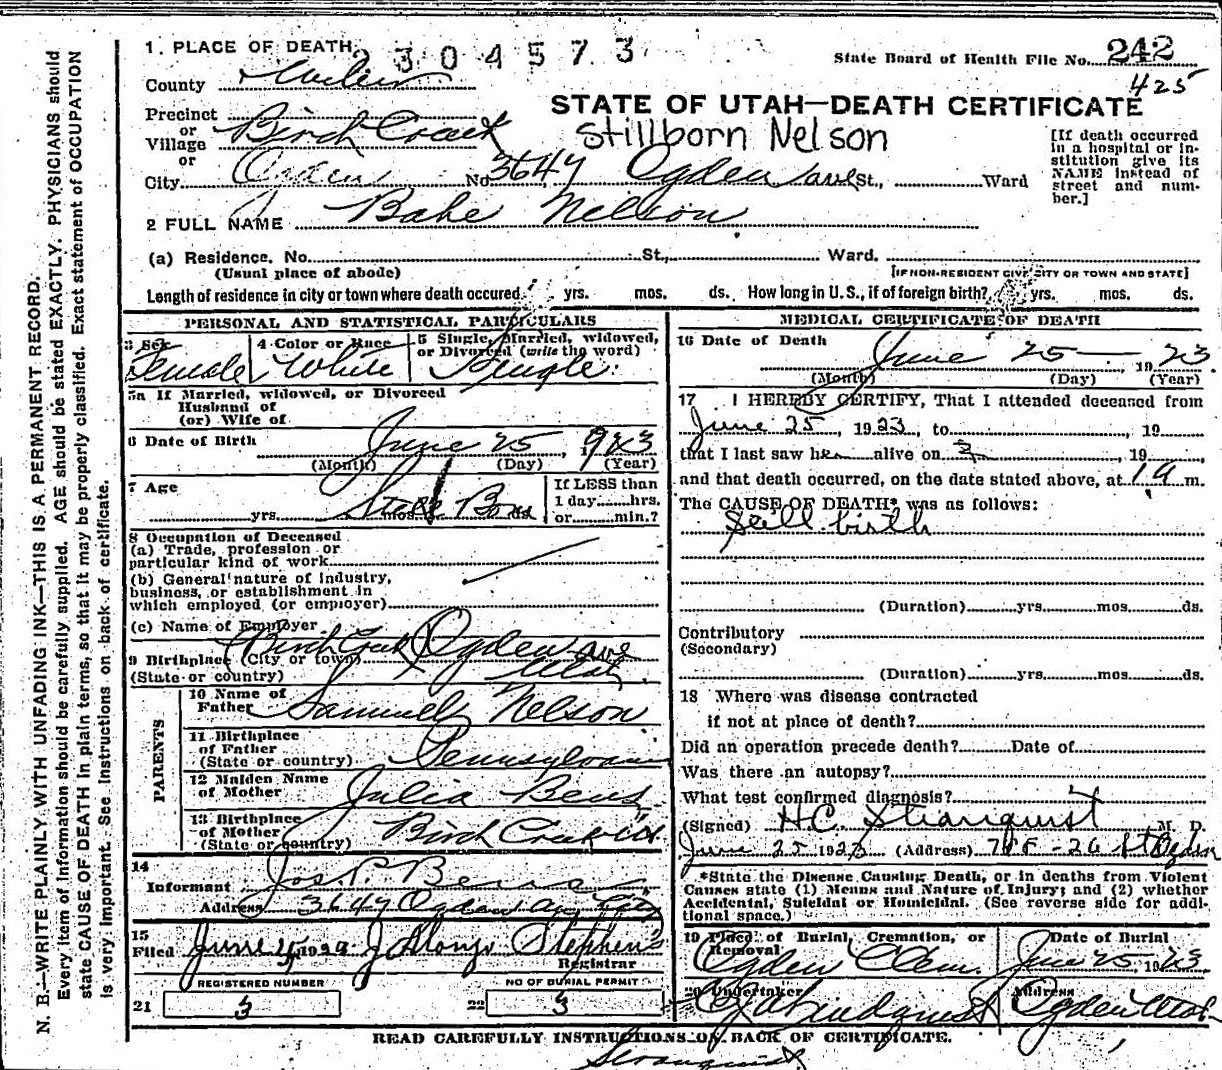 N. B.—WRITE PLAINLY WITH UNFADING INK—THIS IS A PERMANENT RECORD.
Every item of information should be carefully supplied. AGE should be stated EXACTLY. PHYSICIANS should
state CAUSE OF DEATH in plain terms, so that it may be properly classified. Exact statement of OCCUPATION
is very important. See instructions on back of certificate.
1. PLACE OF DEATH
2304573
State Board of Health File No. 242
425
County Weber
STATE OF UTAH—DEATH CERTIFICATE
Precinct
or
Village Birch Creek
Stillborn Nelson
or
City Ogden No 3647 Ogden ave St., Ward
[If death occurred
in a hospital or in-
stitution give its
NAME instead of
street and num-
ber.]
2 FULL NAME Babe Nelson
(a) Residence. No. St., Ward.
(Usual place of abode)
[IF NON-RESIDENT GIVE CITY OR TOWN AND STATE]
Length of residence in city or town where death occured yrs. mos. ds. How long in U. S., if of foreign birth? yrs. mos. ds.
PERSONAL AND STATISTICAL PARTICULARS
3 Sex
Female
4 Color or Race
White
5 Single, Married, widowed,
or Divorced (write the word)
Single
5a If Married, widowed, or Divorced
Husband of
(or) Wife of
6 Date of Birth June 25 1923
(Month) (Day) (Year)
7 Age
yrs. mos. ds.
Still Born
If LESS than
1 day hrs.
or min.?
8 Occupation of Deceased
(a) Trade, profession or
particular kind of work
(b) General nature of industry,
business, or establishment in
which employed (or employer)
(c) Name of Employer
9 Birthplace (City or town) Birch Creek Ogden ave
(State or country) Utah
PARENTS
10 Name of
Father Samuel Nelson
11 Birthplace
of Father
(State or country) Pennsylvania
12 Maiden Name
of Mother Julia Beus
13 Birthplace
of Mother
(State or country) Birch Creek
14
Informant Jos. P. Beus
Address 3647 Ogden Ave City
15
Filed June 1923 J Alonzo Stephens
Registrar
REGISTERED NUMBER
21 3
NO OF BURIAL PERMIT
22 3
MEDICAL CERTIFICATE OF DEATH
16 Date of Death
June 25 1923
(Month) (Day) (Year)
17 I HEREBY CERTIFY, That I attended deceased from
June 25, 1923, to , 19
that I last saw her alive on , 19
and that death occurred, on the date stated above, at 1 a m.
The CAUSE OF DEATH* was as follows:
Still birth
(Duration) yrs. mos. ds.
Contributory
(Secondary)
(Duration) yrs. mos. ds.
18 Where was disease contracted
if not at place of death?
Did an operation precede death? Date of
Was there an autopsy?
What test confirmed diagnosis?
(Signed) H.C. Stranquist M. D.
June 25 1923 (Address) 26 St Ogden
*State the Disease Causing Death, or in deaths from Violent
Causes state (1) Means and Nature of Injury; and (2) whether
Accidental, Suicidal or Homicidal. (See reverse side for addi-
tional space.)
19 Place of Burial, Cremation, or
Removal
Ogden Cem.
Date of Burial
June 25 1923
20 Undertaker
Lindquist
Address
Ogden Utah
READ CAREFULLY INSTRUCTIONS ON BACK OF CERTIFICATE.
Stranquist